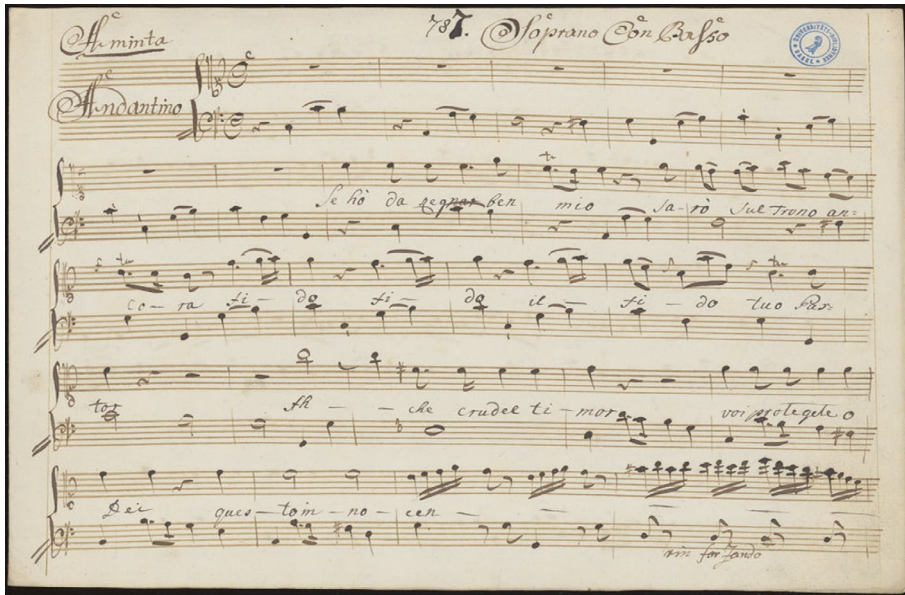 Aminta
787. Soprano Con Basso
Andantino
Se hò da regnar ben mio sa-rò sul trono an=
co-ra fi-do fi-do il-fi-do tuo Pas=
tor Ah--che crudel ti-mor voi protegete o
Dei ques-to in-no-cen-
rin for zando